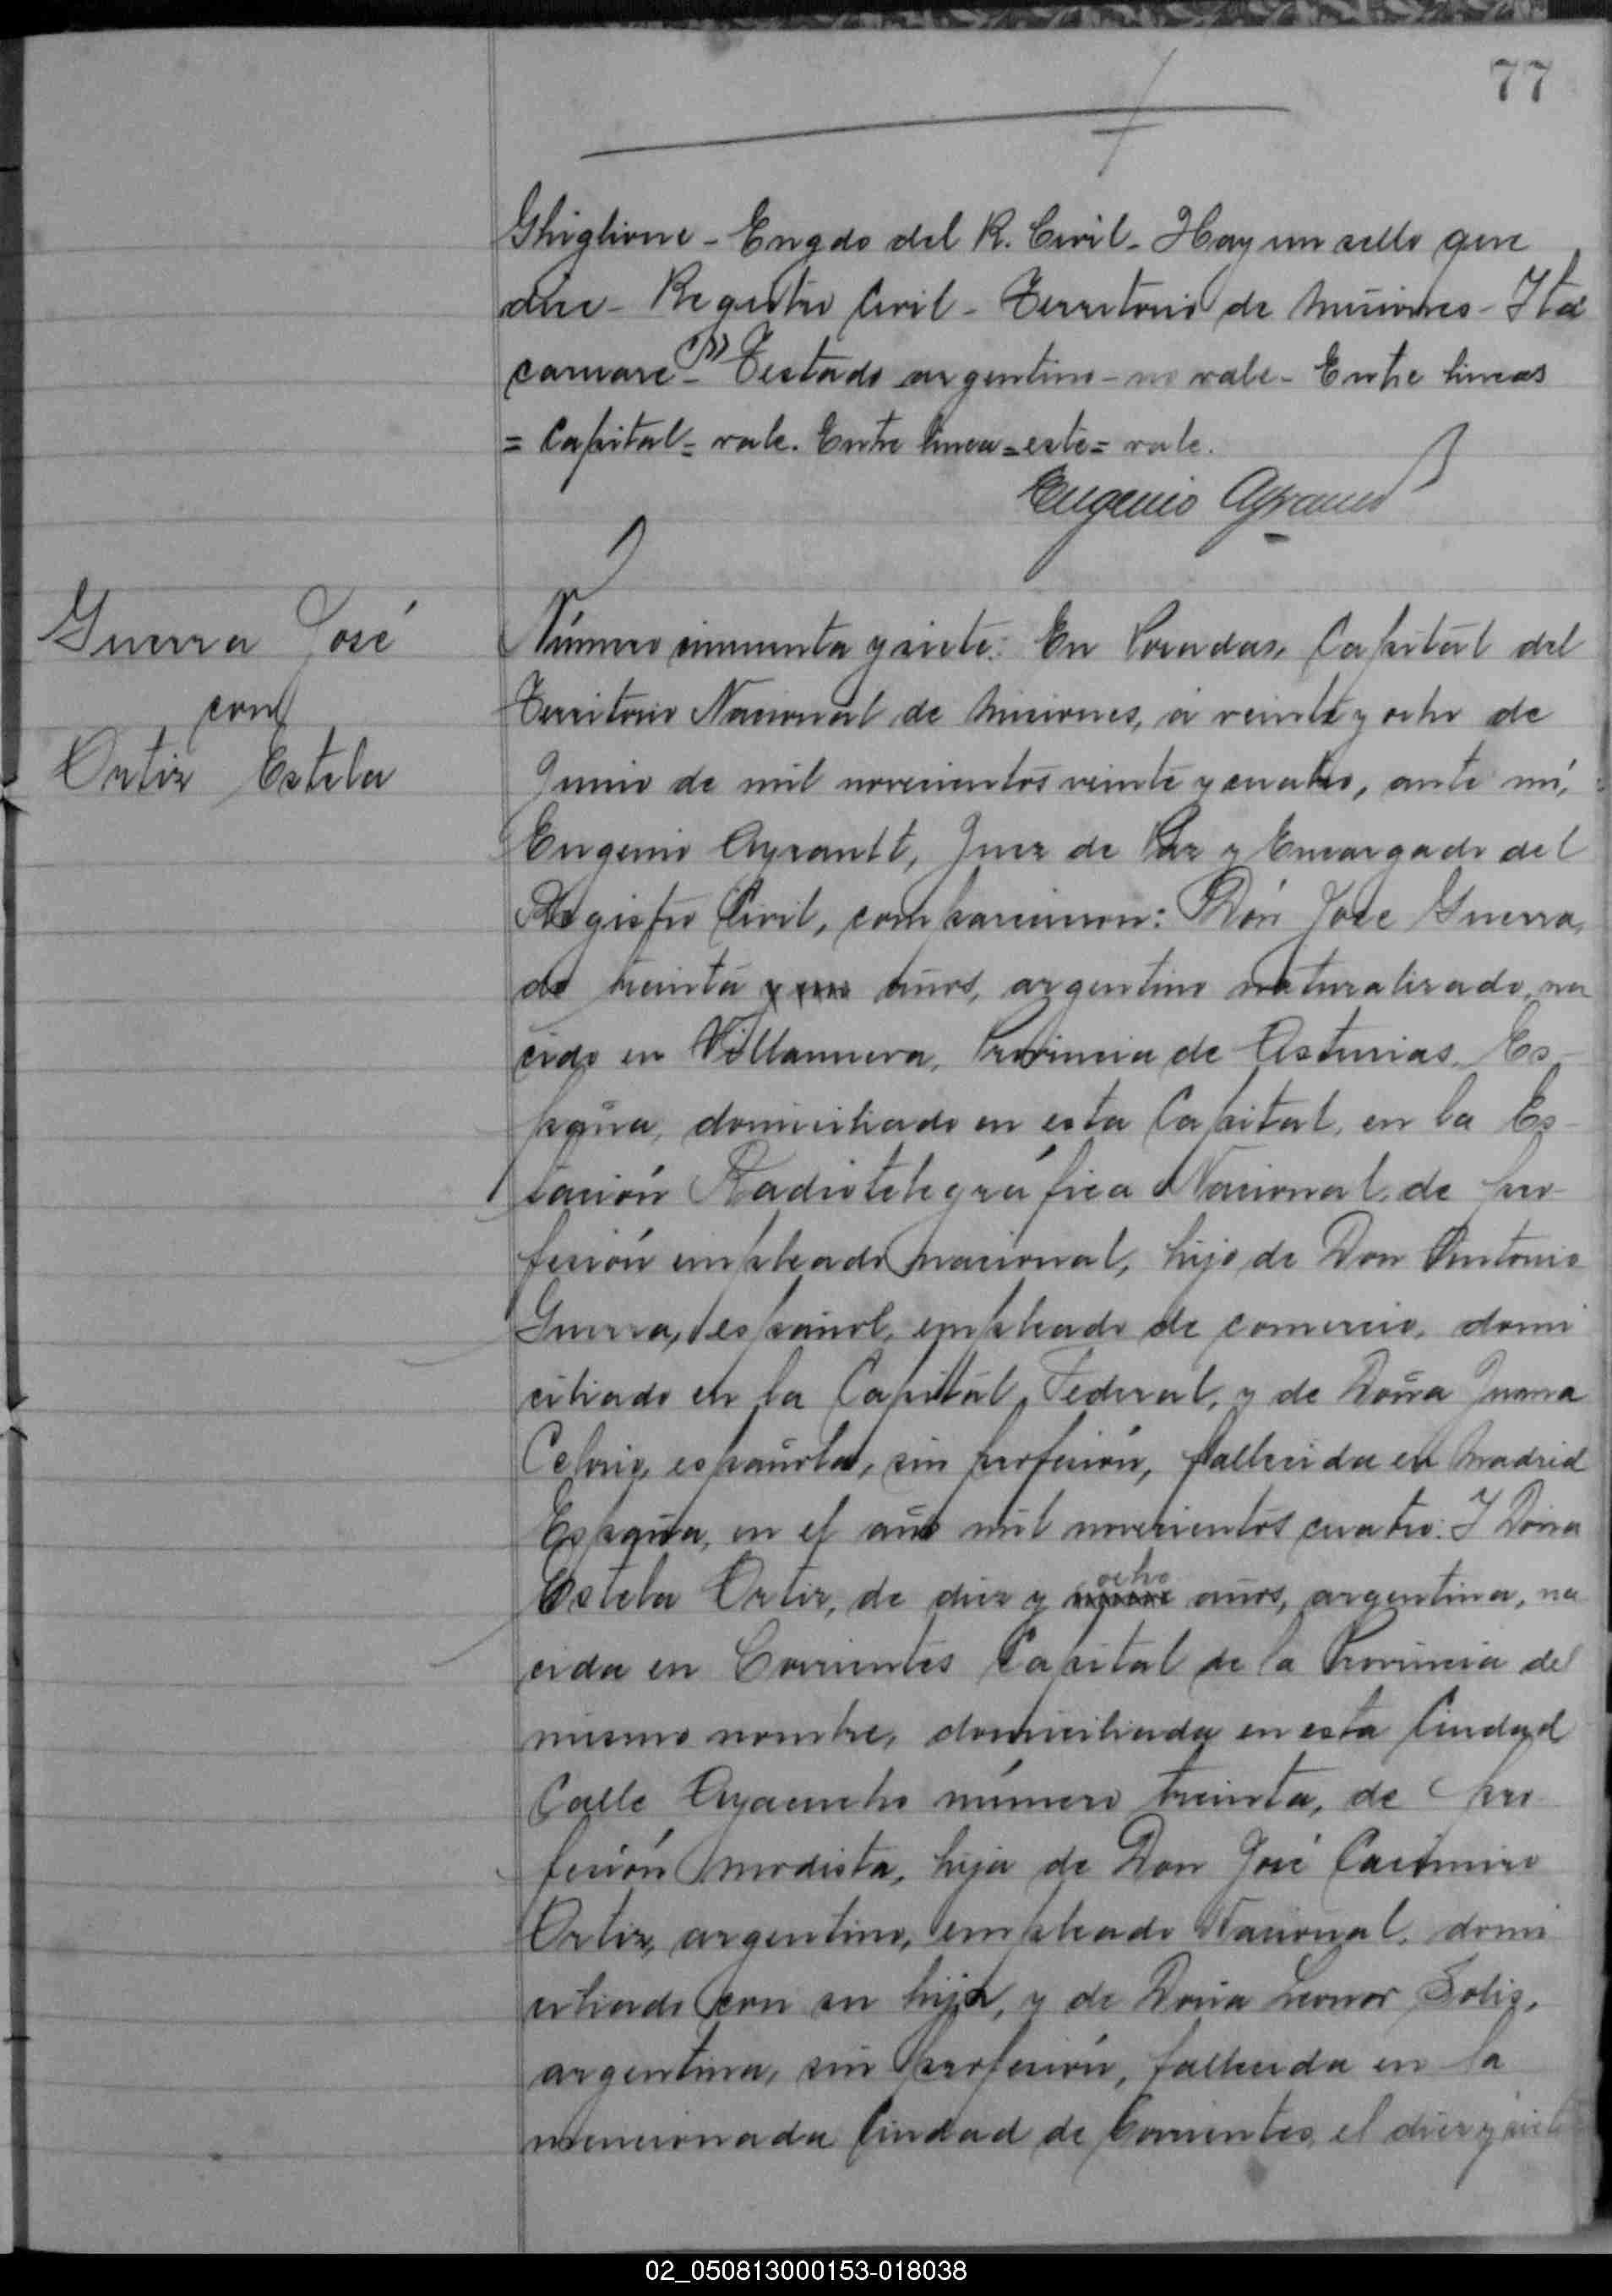 77
Ghiglione - Engdo del R. Civil - Hay un sello que
dice - Registro Civil - Territorio de Misiones - Ita
caruaré" - Testado argentino - no vale - Entre lineas
= Capital = vale. Entre linea = este = vale.
Eugenio Ayrault
Guerra José
con
Ortiz Estela
Número cincuenta y siete: En Posadas, Capital del
Territorio Nacional de Misiones, á veinte y ocho de
Junio de mil novecientos veinte y cuatro, ante mí,
Eugenio Ayrault, Juez de Paz y Encargado del
Registro Civil, comparecieron: Dón José Guerra,
de treinta y un años, argentino naturalizado, na
cido en Villanueva, Provincia de Asturias, Es-
paña, domiciliado en esta Capital, en la Es-
tación Radiotelegráfica Nacional, de pro-
fesión empleado nacional, hijo de Don Antonio
Guerra, español, empleado de comercio, domi
ciliado en la Capital Federal, y de Doña Juana
Celorio, española, sin profesión, fallecida en Madrid
España, en el año mil novecientos cuatro: Y Doña
Estela Ortiz, de diez y nueve ocho años, argentina, na
cida en Corrientes Capital de la Provincia del
mismo nombre, domiciliada en esta Ciudad
Calle Ayacucho número treinta, de pro-
fesión modista, hija de Don José Casimiro
Ortiz, argentino, empleado Nacional, domi
ciliado con su hija, y de Doña Leonor Solis,
argentina, sin profesión, fallecida en la
mencionada Ciudad de Corrientes el diez y siete
02_050813000153-018038